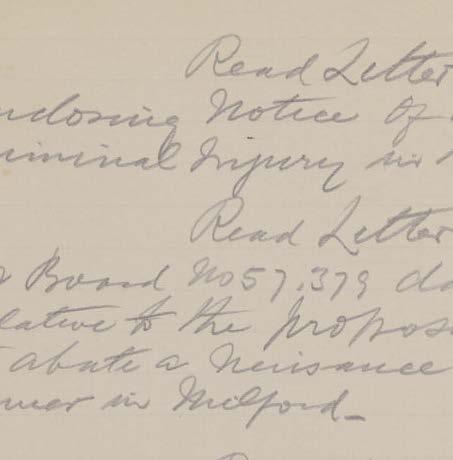 Read Letter
nclosing Notice of
riminal Injury in
Read Letter
Board No 57.379 da
lative to the propos
abate a Neusance
wer in Milford_